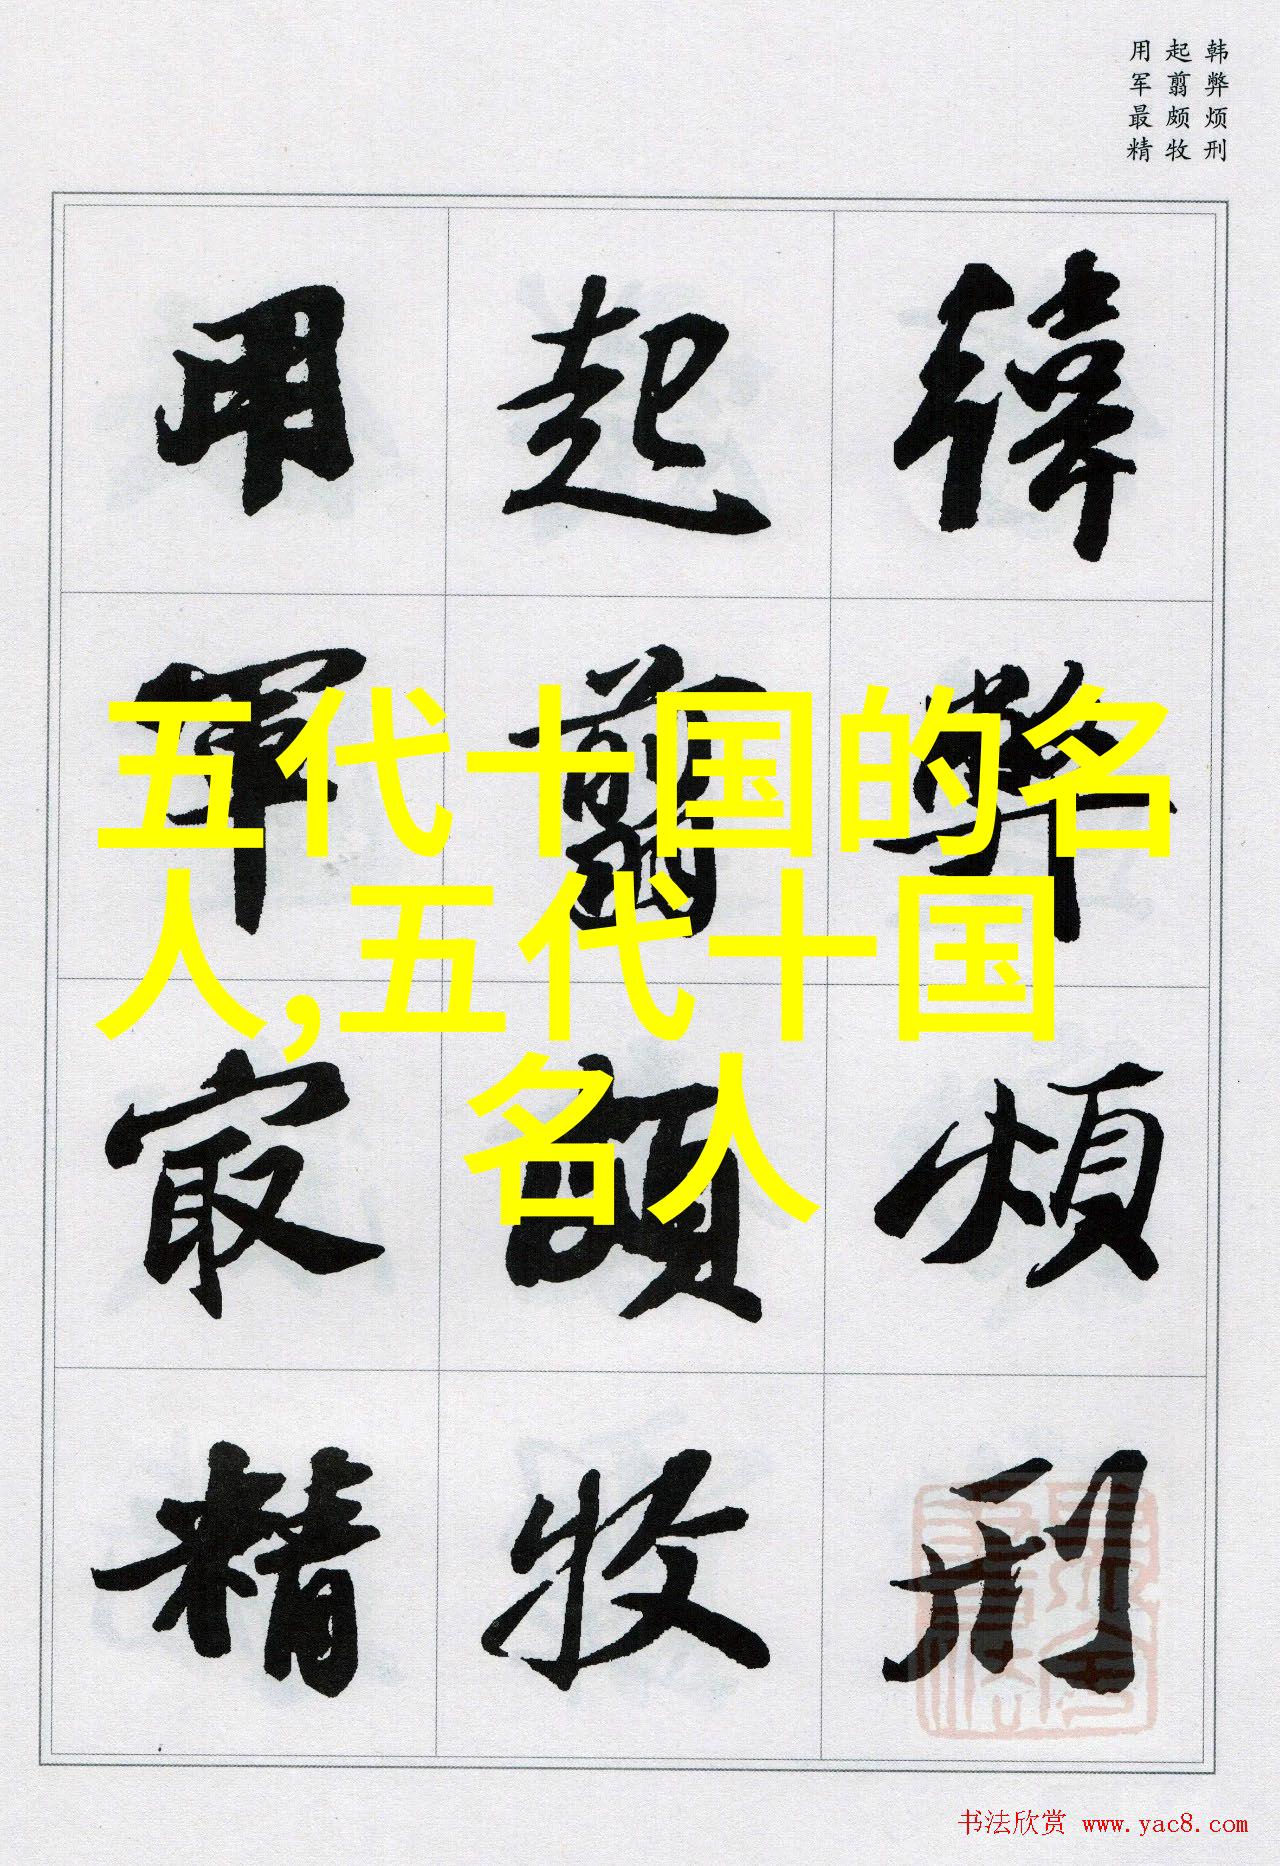 韩弊烦刑
起翦颇牧
用军最精
韩弊烦刑
起翦颇牧
用军最精
五代十国的名
人,五代十国
名人
书法欣赏 www.yac8.com